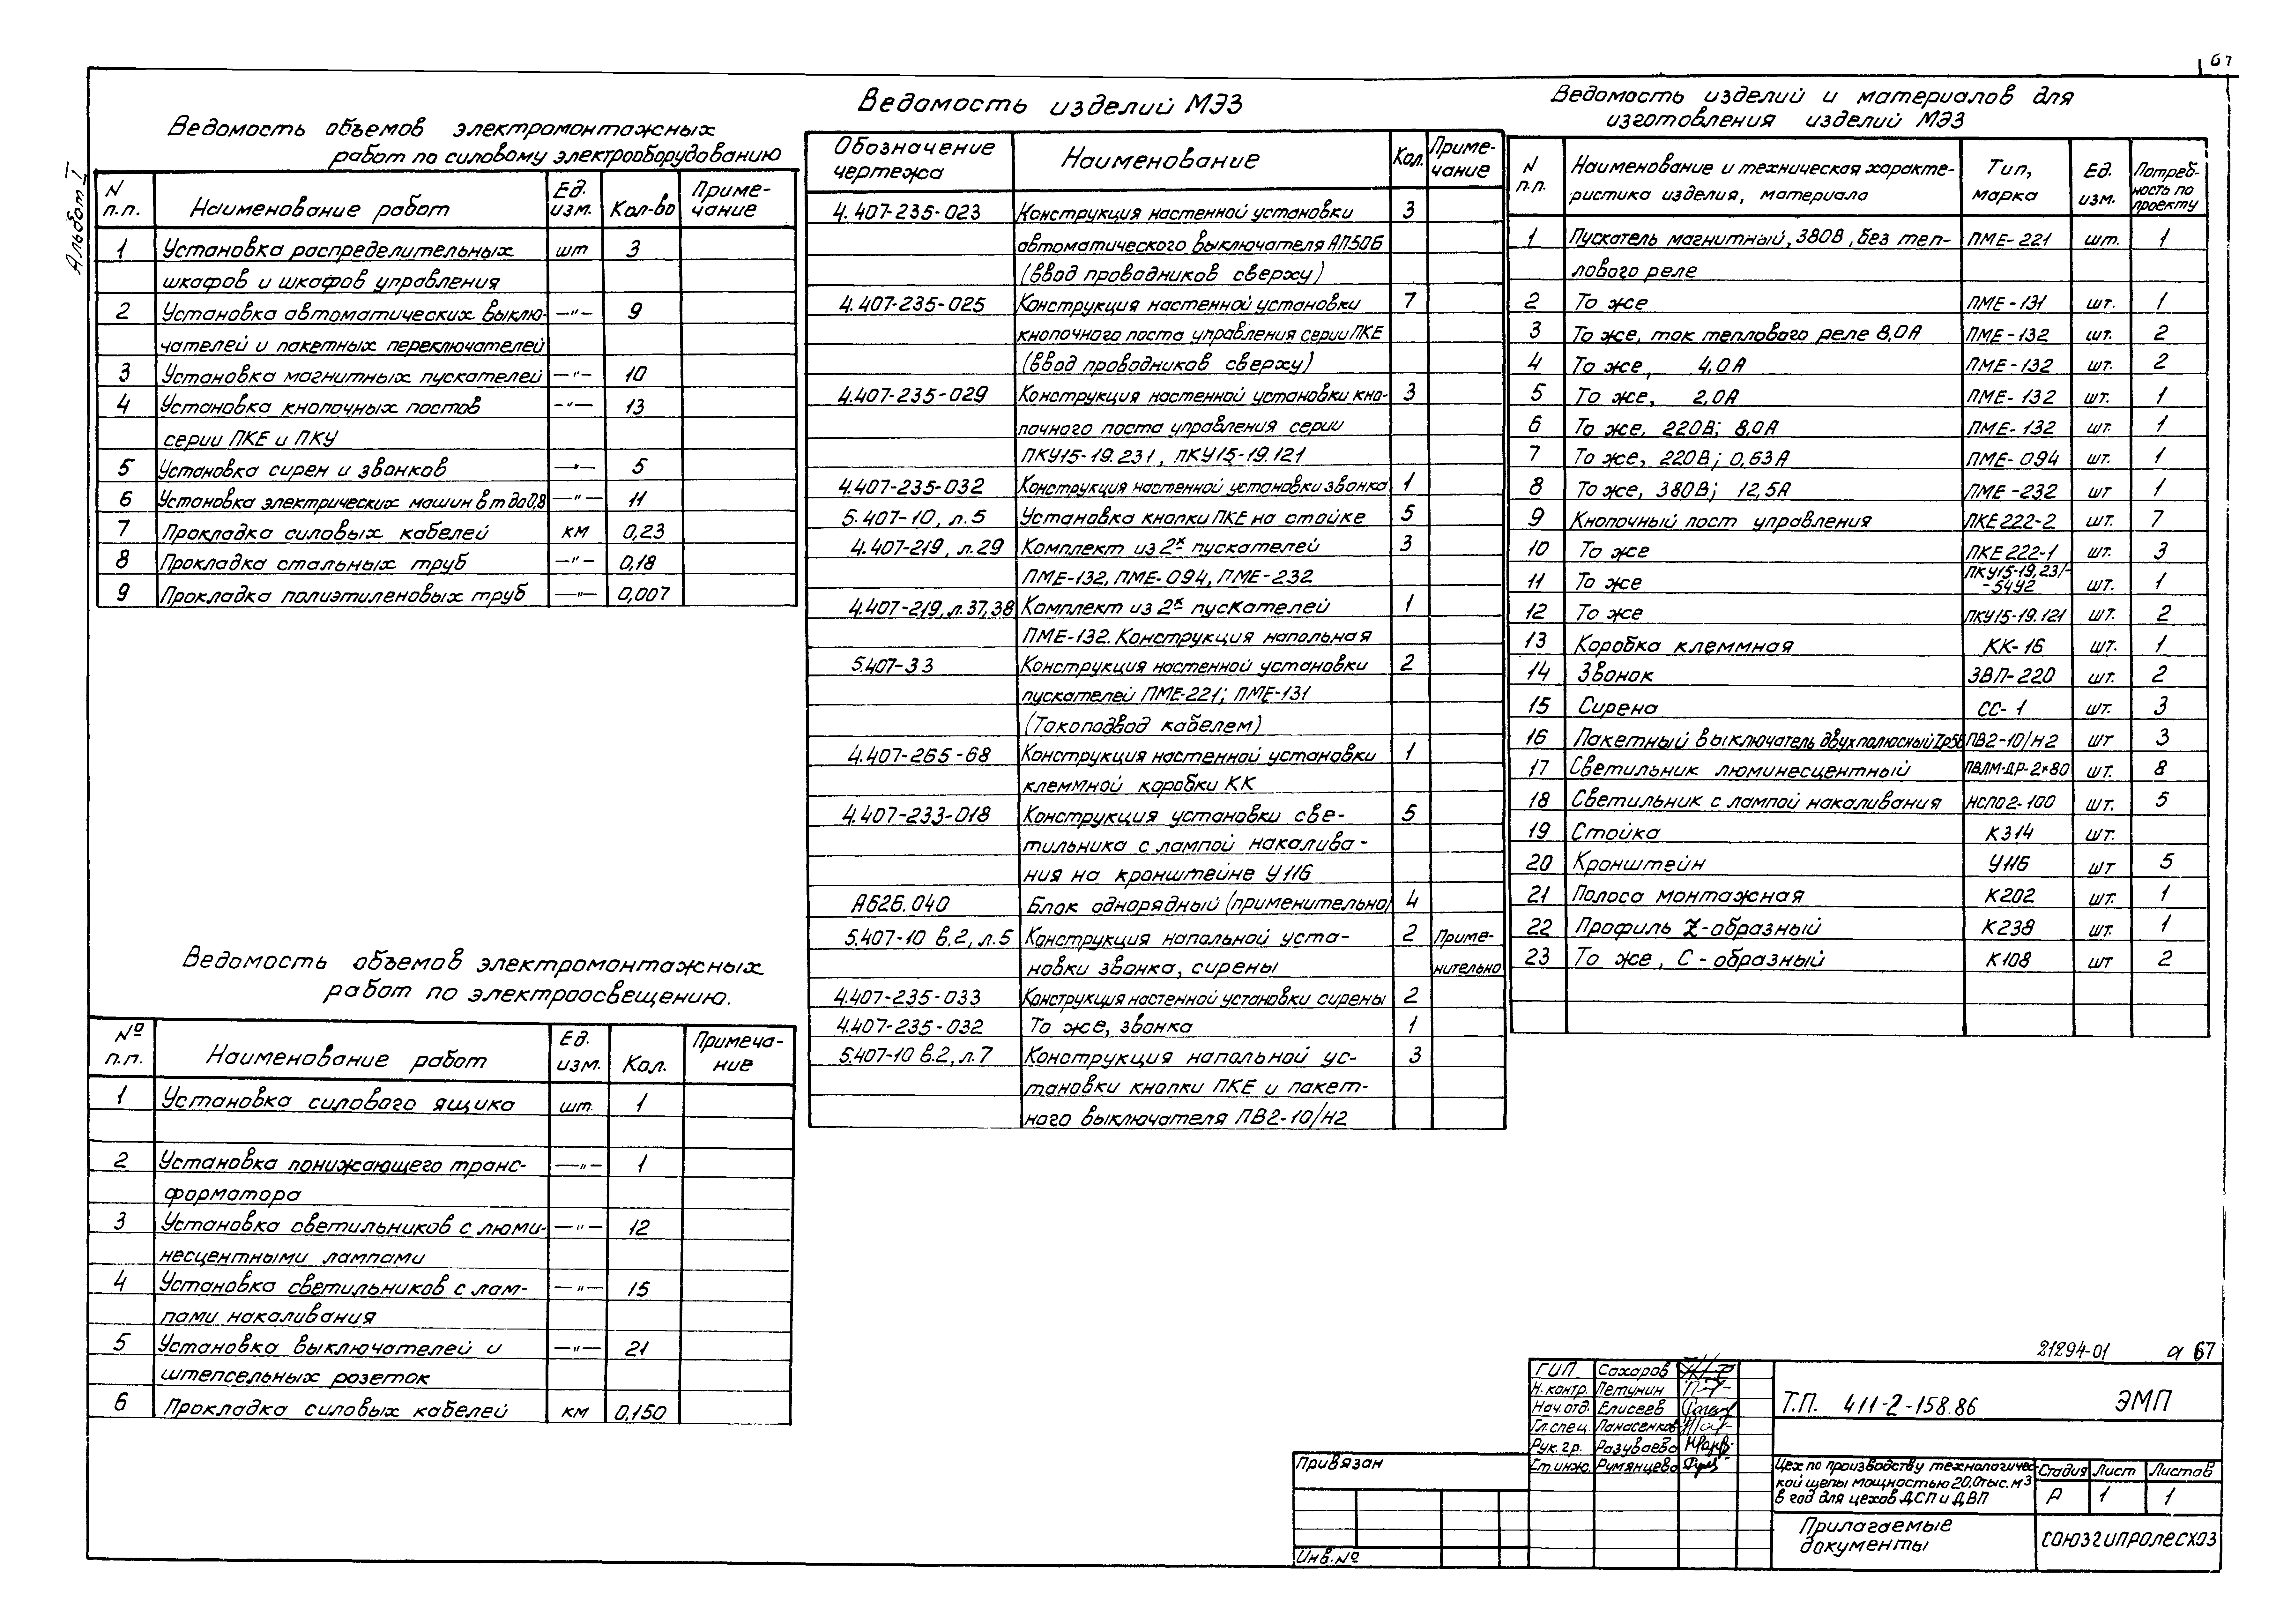 67
Альбом I
Ведомость объемов электромонтажных
работ по силовому электрооборудованию
N п.п. Наименование работ Ед. изм. Кол-во Приме-чание
1 Установка распределительных шт 3
шкафов и шкафов управления
2 Установка автоматических выклю- —"— 9
чателей и пакетных переключателей
3 Установка магнитных пускателей —"— 10
4 Установка кнопочных постов —"— 13
серии ПКЕ и ПКУ
5 Установка сирен и звонков —"— 5
6 Установка электрических машин в т до 0,8 —"— 11
7 Прокладка силовых кабелей км 0,23
8 Прокладка стальных труб —"— 0,18
9 Прокладка полиэтиленовых труб —"— 0,007
Ведомость объемов электромонтажных
работ по электроосвещению.
№ п.п. Наименование работ Ед. изм. Кол. Примеча-ние
1 Установка силового ящика шт. 1
2 Установка понижающего транс- —"— 1
форматора
3 Установка светильников с люми- —"— 12
несцентными лампами
4 Установка светильников с лам- —"— 15
пами накаливания
5 Установка выключателей и —"— 21
штепсельных розеток
6 Прокладка силовых кабелей км 0,150
Ведомость изделий МЭЗ
Обозначение чертежа Наименование Кол. Приме-чание
4.407-235-023 Конструкция настенной установки 3
автоматического выключателя АП50Б
(ввод проводников сверху)
4.407-235-025 Конструкция настенной установки 7
кнопочного поста управления серии ПКЕ
(ввод проводников сверху)
4.407-235-029 Конструкция настенной установки кно- 3
почного поста управления серии
ПКУ15-19.231, ПКУ15-19.121
4.407-235-032 Конструкция настенной установки звонка 1
5.407-10, л.5 Установка кнопки ПКЕ на стойке 5
4.407-219, л.29 Комплект из 2х пускателей 3
ПМЕ-132, ПМЕ-094, ПМЕ-232
4.407-219, л.37,38 Комплект из 2х пускателей 1
ПМЕ-132. Конструкция напольная
5.407-33 Конструкция настенной установки 2
пускателей ПМЕ-221; ПМЕ-131
(Токоподвод кабелем)
4.407-265-68 Конструкция настенной установки 1
клеммной коробки КК
4.407-233-018 Конструкция установки све- 5
тильника с лампой накалива-
ния на кронштейне У116
А626.040 Блок однорядный (применительно) 4
5.407-10 в.2, л.5 Конструкция напольной уста- 2 Приме-
новки звонка, сирены нительно
4.407-235-033 Конструкция настенной установки сирены 2
4.407-235-032 То же, звонка 1
5.407-10 в.2, л.7 Конструкция напольной ус- 3
тановки кнопки ПКЕ и пакет-
ного выключателя ПВ2-10/Н2
Ведомость изделий и материалов для
изготовления изделий МЭЗ
N п.п. Наименование и техническая характе-ристика изделия, материала Тип, марка Ед. изм. Потреб-ность по проекту
1 Пускатель магнитный, 380В, без теп- ПМЕ-221 шт. 1
лового реле
2 То же ПМЕ-131 шт. 1
3 То же, ток теплового реле 8,0А ПМЕ-132 шт. 2
4 То же, 4,0А ПМЕ-132 шт. 2
5 То же, 2,0А ПМЕ-132 шт. 1
6 То же, 220В; 8,0А ПМЕ-132 шт. 1
7 То же, 220В; 0,63А ПМЕ-094 шт. 1
8 То же, 380В; 12,5А ПМЕ-232 шт 1
9 Кнопочный пост управления ПКЕ222-2 шт. 7
10 То же ПКЕ222-1 шт. 3
11 То же ПКУ15-19.231-
-54У2 шт. 1
12 То же ПКУ15-19.121 шт. 2
13 Коробка клеммная КК-16 шт. 1
14 Звонок ЗВП-220 шт. 2
15 Сирена СС-1 шт. 3
16 Пакетный выключатель двухполюсный Iр56 ПВ2-10/Н2 шт 3
17 Светильник люминесцентный ПВЛМ-ДР-2*80 шт. 8
18 Светильник с лампой накаливания НСП02-100 шт. 5
19 Стойка К314 шт.
20 Кронштейн У116 шт 5
21 Полоса монтажная К202 шт. 1
22 Профиль Z-образный К239 шт. 1
23 То же, С-образный К108 шт 2
21294-01 а 67
ГИП Сахаров
Н.контр. Петунин
Нач.отд. Елисеев
Гл.спец. Панасенков
Рук.гр. Разуваева
Ст.инж. Румянцева
Т.П. 411-2-158.86 ЭМП
Привязан
Инв.№
Цех по производству технологичес-
кой щепы мощностью 20,0тыс.м3
в год для цехов ДСП и ДВП
Стадия Лист Листов
Р 1 1
Прилагаемые
документы
СОЮЗГИПРОЛЕСХОЗ